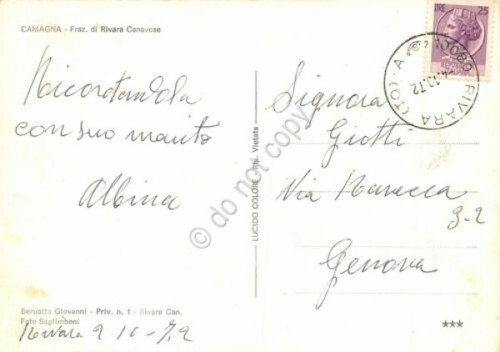 CAMAGNA - Fraz. di Rivara Canavese
Ricordandola
con suo marito
Albina
Berustto Giovanni - Priv. n. 1 - Rivara Can.
Foto Saptimbeni
Rivara 2 10-72
LUCIDO COLORE Vietata
LIRE 25
10080 RIVARA (TO) A
4.10.72
Signora
Giotti
Via
3-2
Genova
***
© do not copy